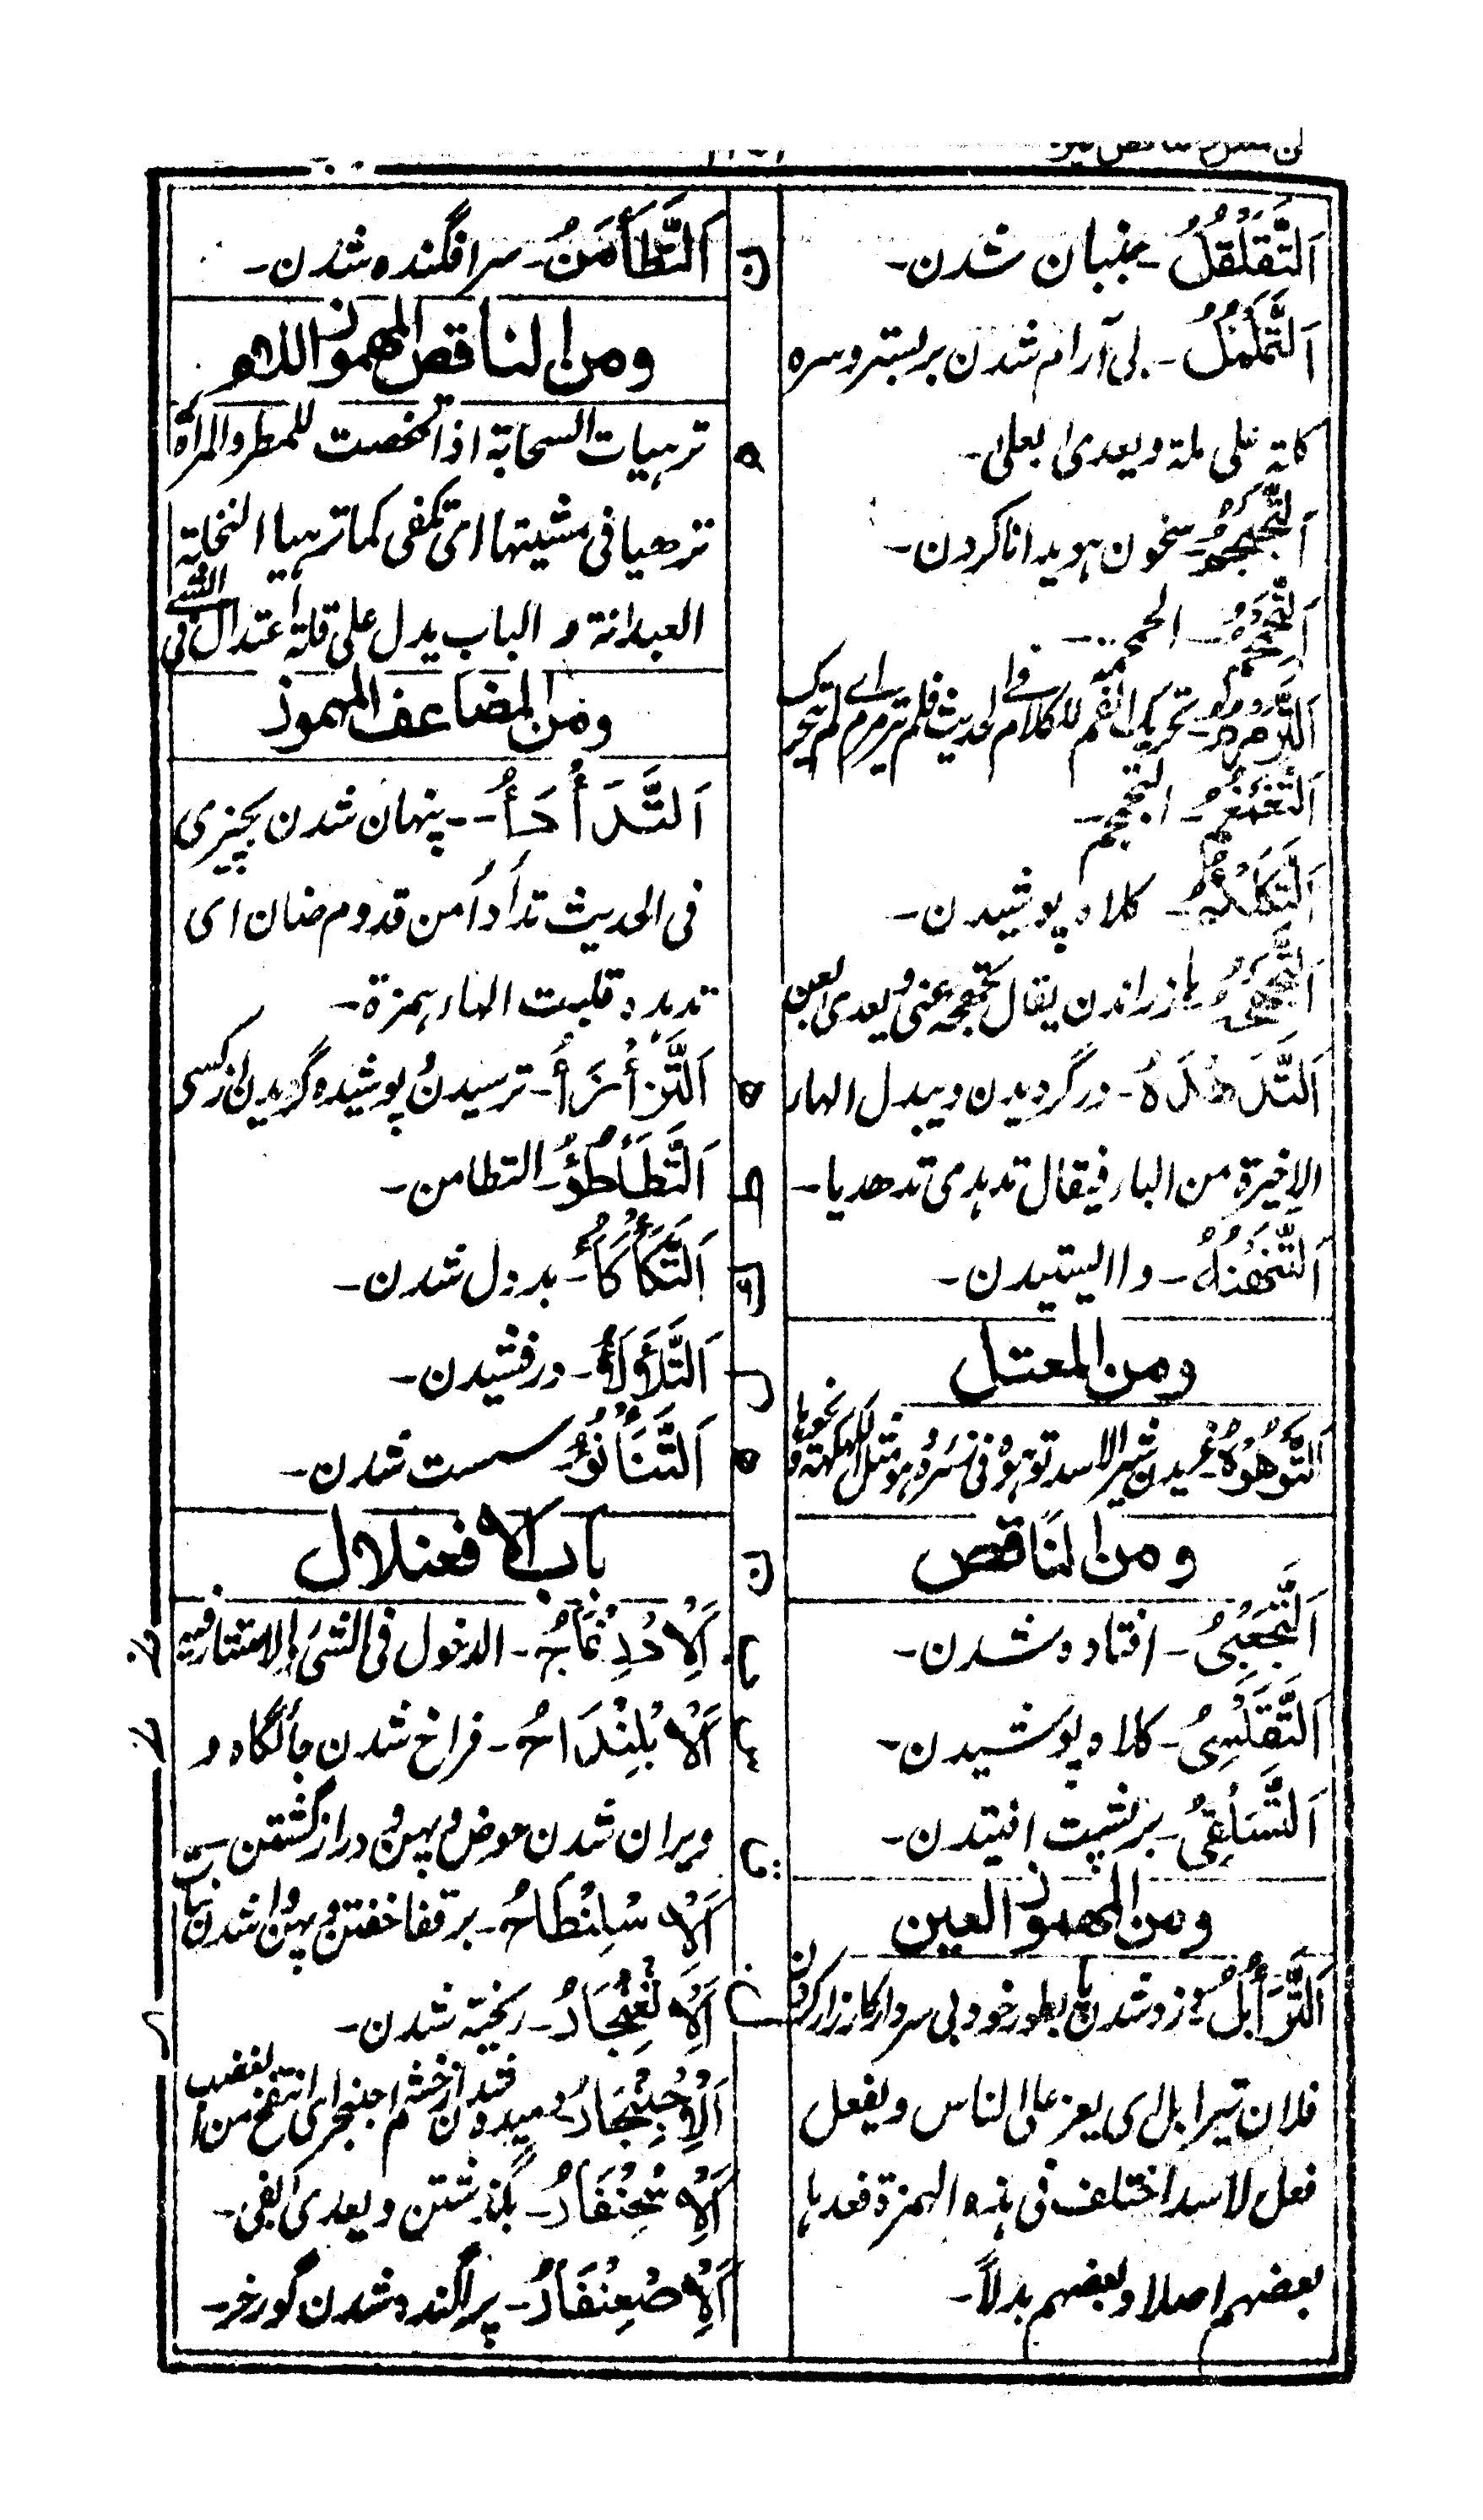 اَلتَّقَلْقُلُ۔ جنبان شدن۔
اَلتَّمَلْمُلُ۔ بی آرام شدن بر بستر و سره
کانه علی ملة و یعدی بعلی۔
اَلتَّجَمْجُمُ۔ سخون هویدا نا کردن۔
اَلتَّحَمْحُمُ۔ الحمحمة۔
اَلتَّرَمْرُمُ۔ تحریک الفم للکلام و فی الحدیث فلم یترمرم اے لم یتحرک
اَلتَّغَمْغُمُ۔ التجمجم۔
اَلتَّكَمْكُمُ۔ کلاه پوشیدن۔
باز راندن یقال عنی و یعدی بعن
اَلتَّدَهْدُهُ۔ در گردیدن و یبدل الهاء
الاخیرة من الیاء فیقال تدهدی تدهدیا۔
اَلتَّنَهْنُهُ۔ وا ایستیدن۔
ومن المعتل
اَلتَّوَهْوُهُ۔ غریدن شیر الاسد توهوه فی
ومن الناقص
اَلتَّجَعْبِیُ۔ افتاده شدن۔
اَلتَّقَلْسِیُ۔ کلاه پوشیدن۔
اَلتَّسَلْقِیُ۔ بر پشت افتیدن۔
ومن المهموز العین
اَلتَّرَأْبُلُ۔ شدن یا بطور خود بی سردار کارزار کردن
فلان تیرابل ای یعز علی الناس و یفعل
فعل الاسد اختلف فی هذه الهمزة فعدها
بعضهم اصلا و بعضهم بدلاً۔
اَلتَّطَأْمُنُ۔ سر افگنده شدن۔
ومن الناقص المهموز اللام
ترهیات السحابة اذا تمخضت للمطر و المرأة
ترهیا فی مشیتها ای تکفی کما ترهیا النخلة
العیدانة و الباب یدل علی قلة اعتدال فی الشئ
ومن المضاعف المهموز
اَلتَّدَأْدَأُ۔ پنهان شدن بچیزی
فی الحدیث تدأدأ من قدوم ضان ای
تدهده قلبت الهاء همزة۔
اَلتَّزَأْزَأُ۔ ترسیدن و پوشیده گردیدن از کسی
اَلتَّطَأْطُؤُ۔ التطامن۔
اَلتَّكَأْكَأُ۔ بددل شدن۔
اَلتَّلَأْلَأُ۔ درفشیدن۔
اَلتَّنَأْنُؤُ۔ سست شدن۔
باب الافعنلال
اَلِادْرِنْمَاجُ۔ الدخول فی الشئ و الاستتار فیه
اَلِابْلِنْدَاحُ۔ فراخ شدن جایگاه و
ویران شدن حوض و پهن و دراز گشتن
اَلِاسْلِنْطَاحُ۔ بر قفا خفتن و پهن وا شدن
اَلِاثْعِنْجَارُ۔ ریخته شدن۔
دمیده شدن از خشم اجنجر ای انتفخ من الغضب
بگذشتن و یعدی بفی۔
اَلِاصْعِنْفَارُ۔ پراگنده شدن گورخر۔